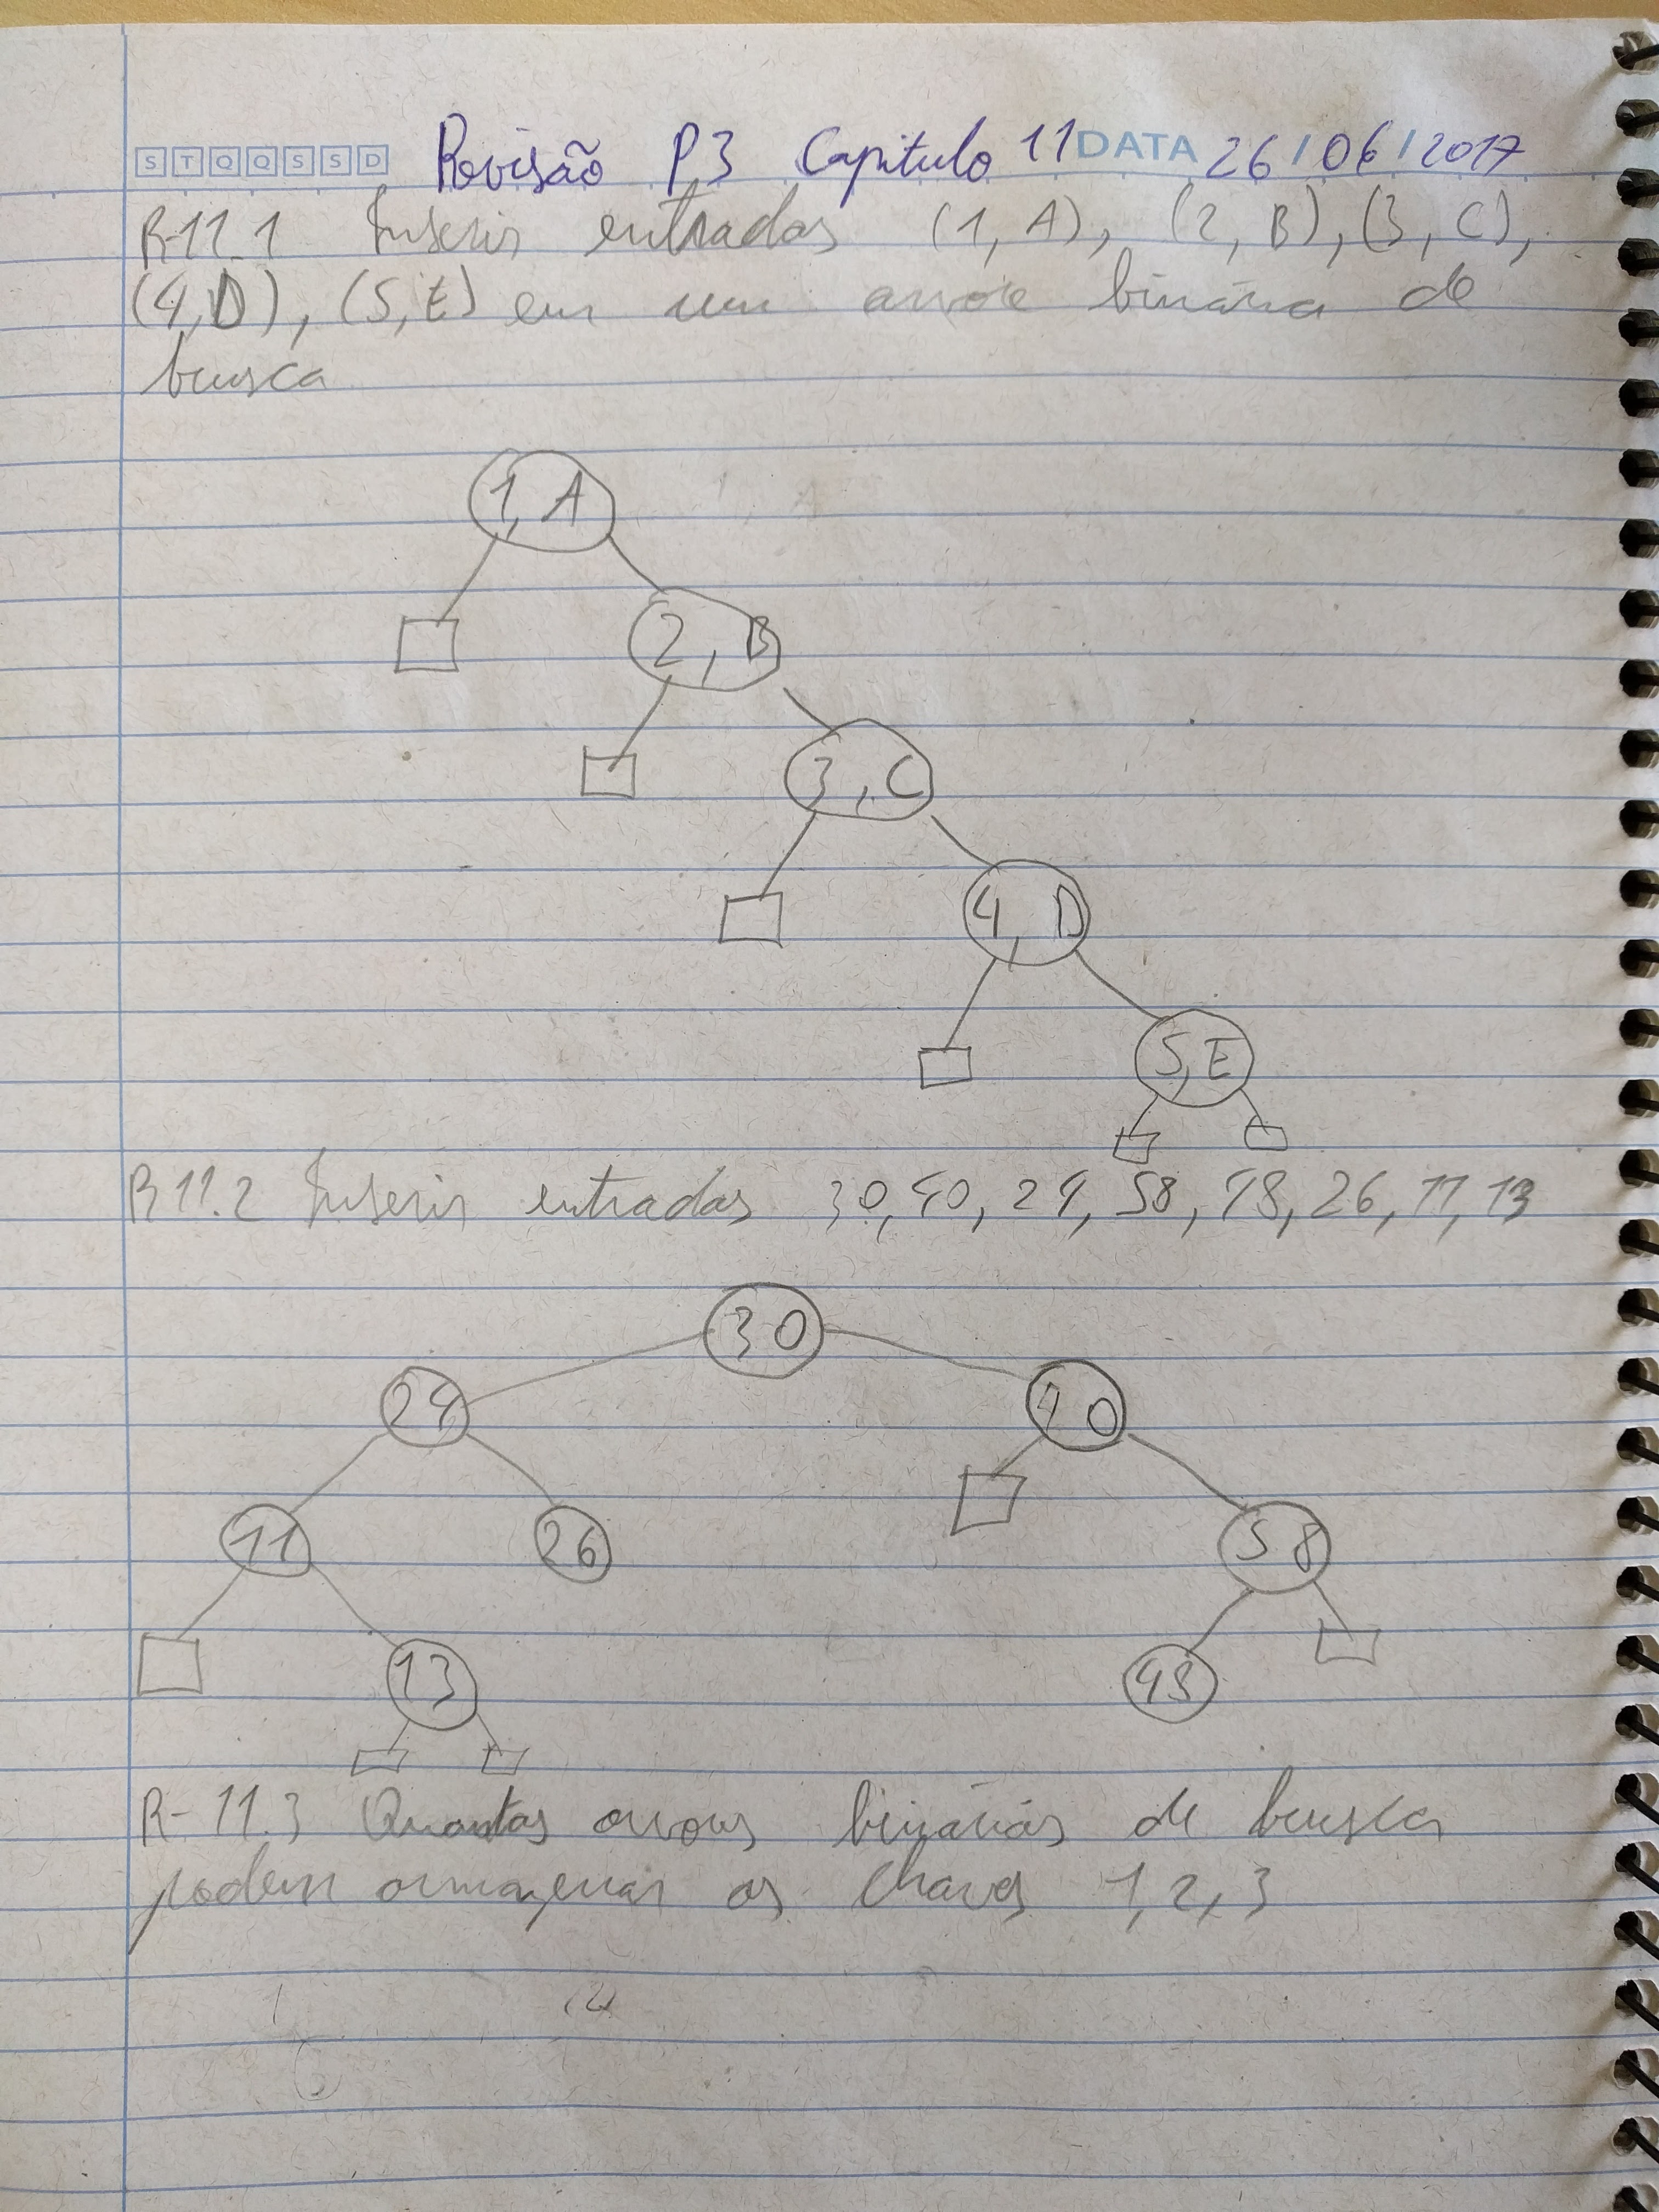 S T Q Q S S D Revisão P3 Capitulo 11 DATA 26/06/2017
R-11.1 Inserir entradas (1, A), (2, B), (3, C),
(4, D), (5, E) em um arvore binária de
busca
1, A
2, B
3, C
4, D
5, E
R 11.2 Inserir entradas 30, 40, 24, 58, 48, 26, 11, 13
30
24 40
11 26 58
13 48
R-11.3 Quantas arvores binárias de busca
podem armazenar as chaves 1, 2, 3